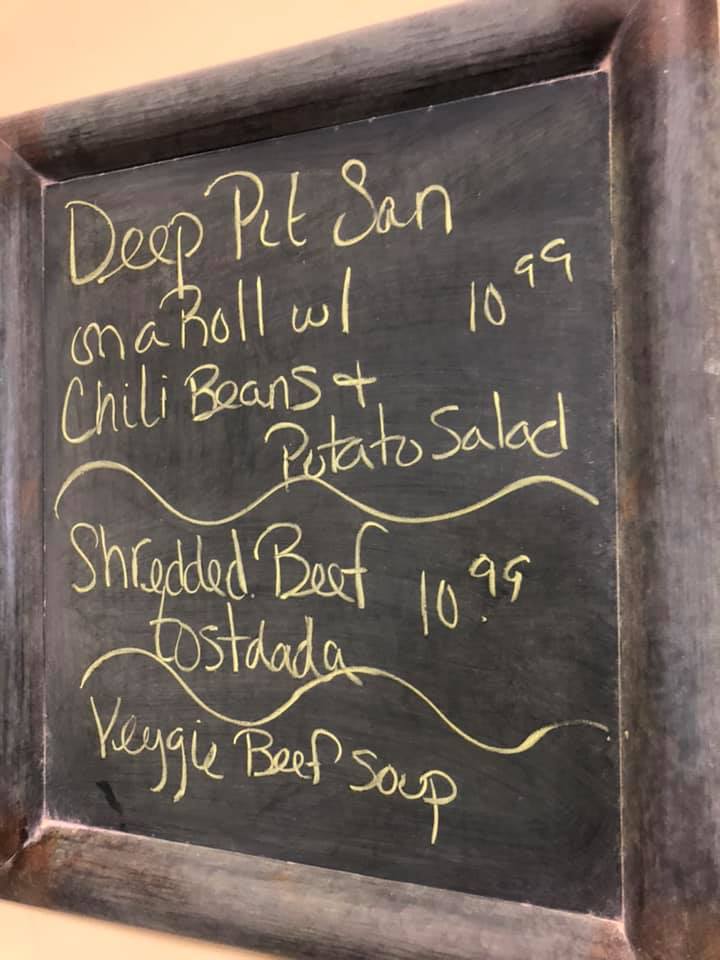 Deep Pit San
on a Roll w/ 10 99
Chili Beans +
Potato Salad
Shredded Beef 10.99
tostdada
Veggie Beef Soup